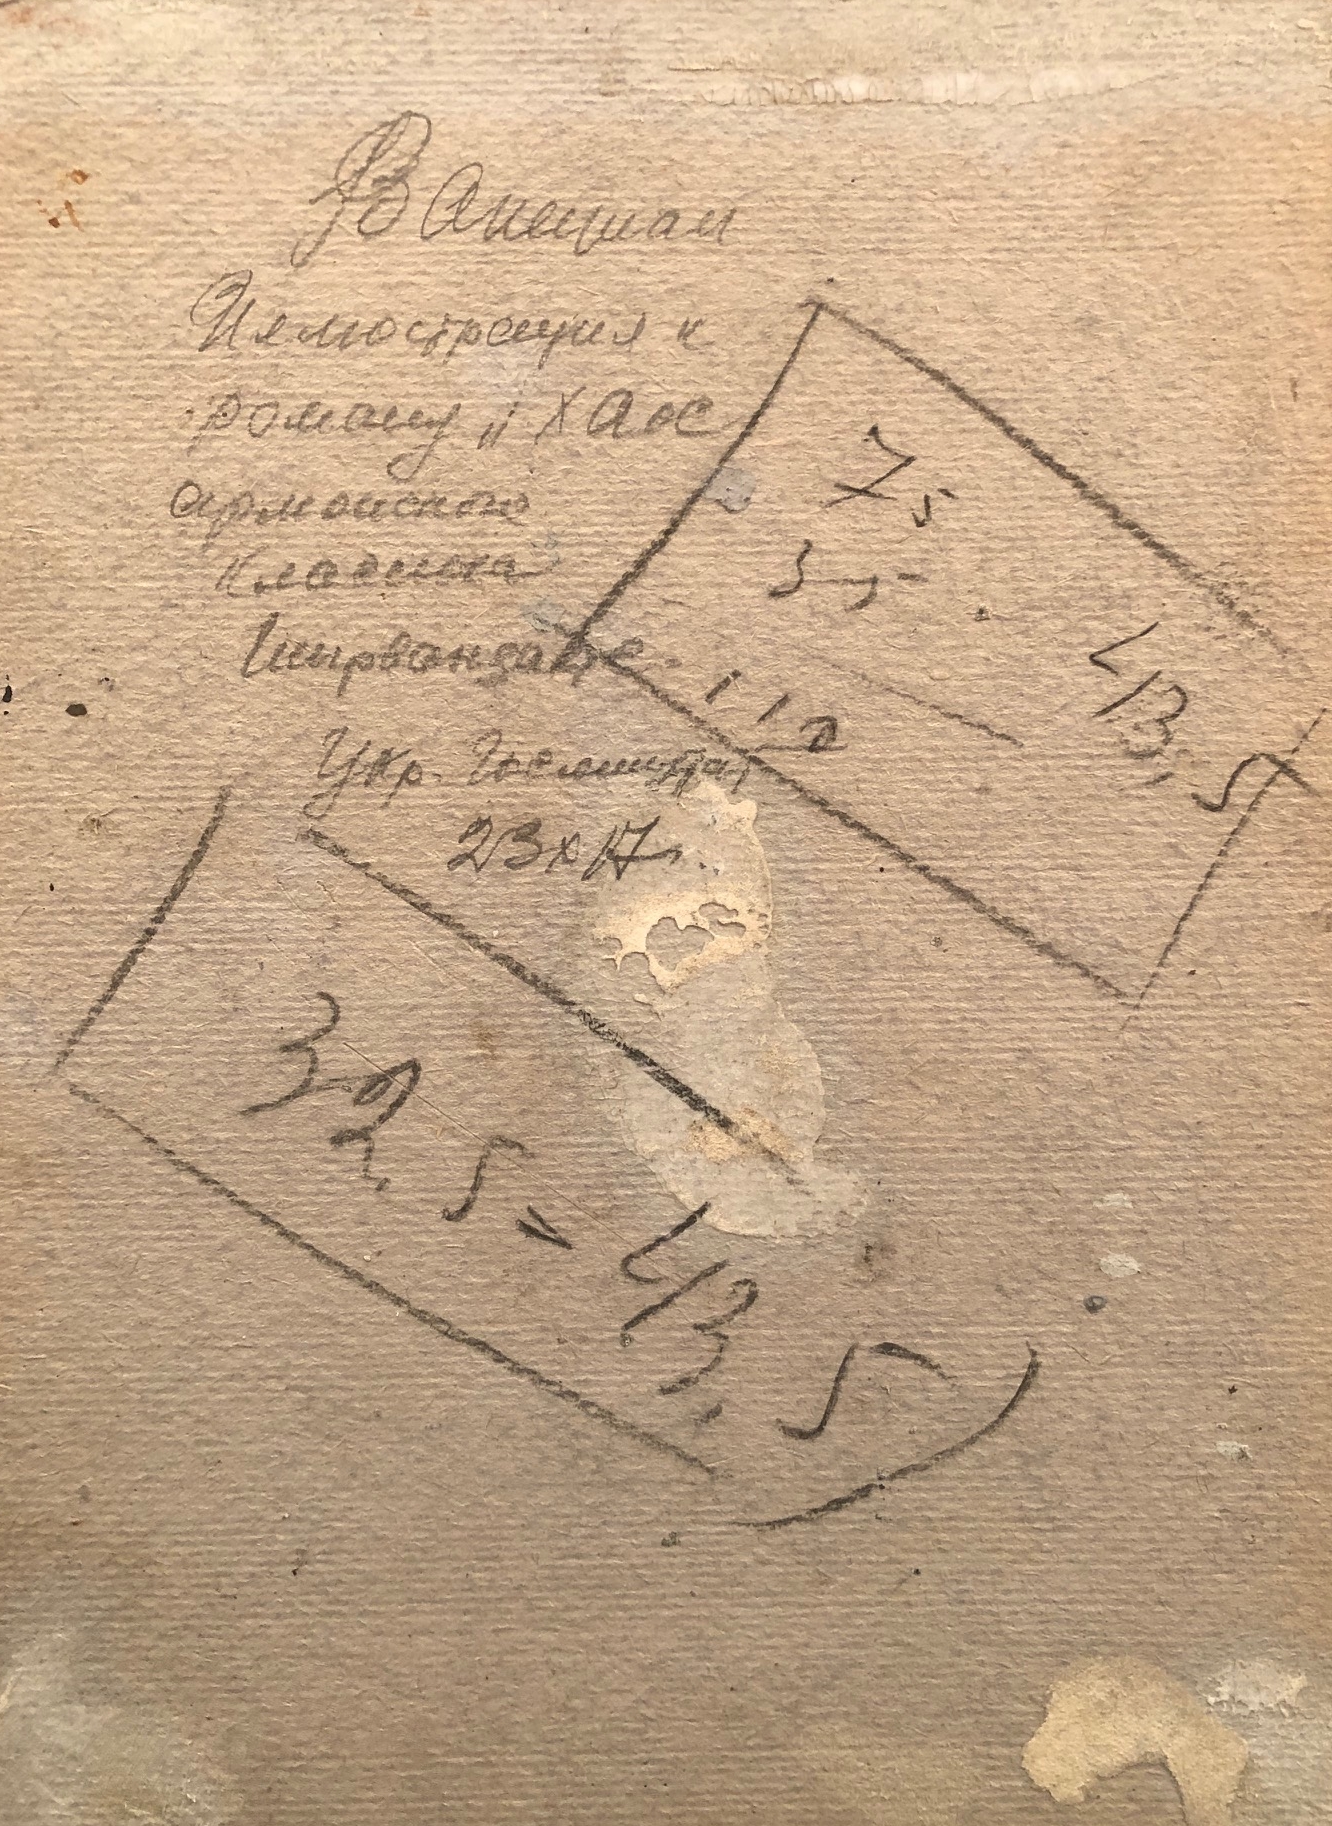 В Анещан
Иллюстрация к
роману „Хаос
армянского
класика
Ширванзаде.
Укр. Гослитиздат,
23х17.
75
35
110
43,5
32,5 = 43,5